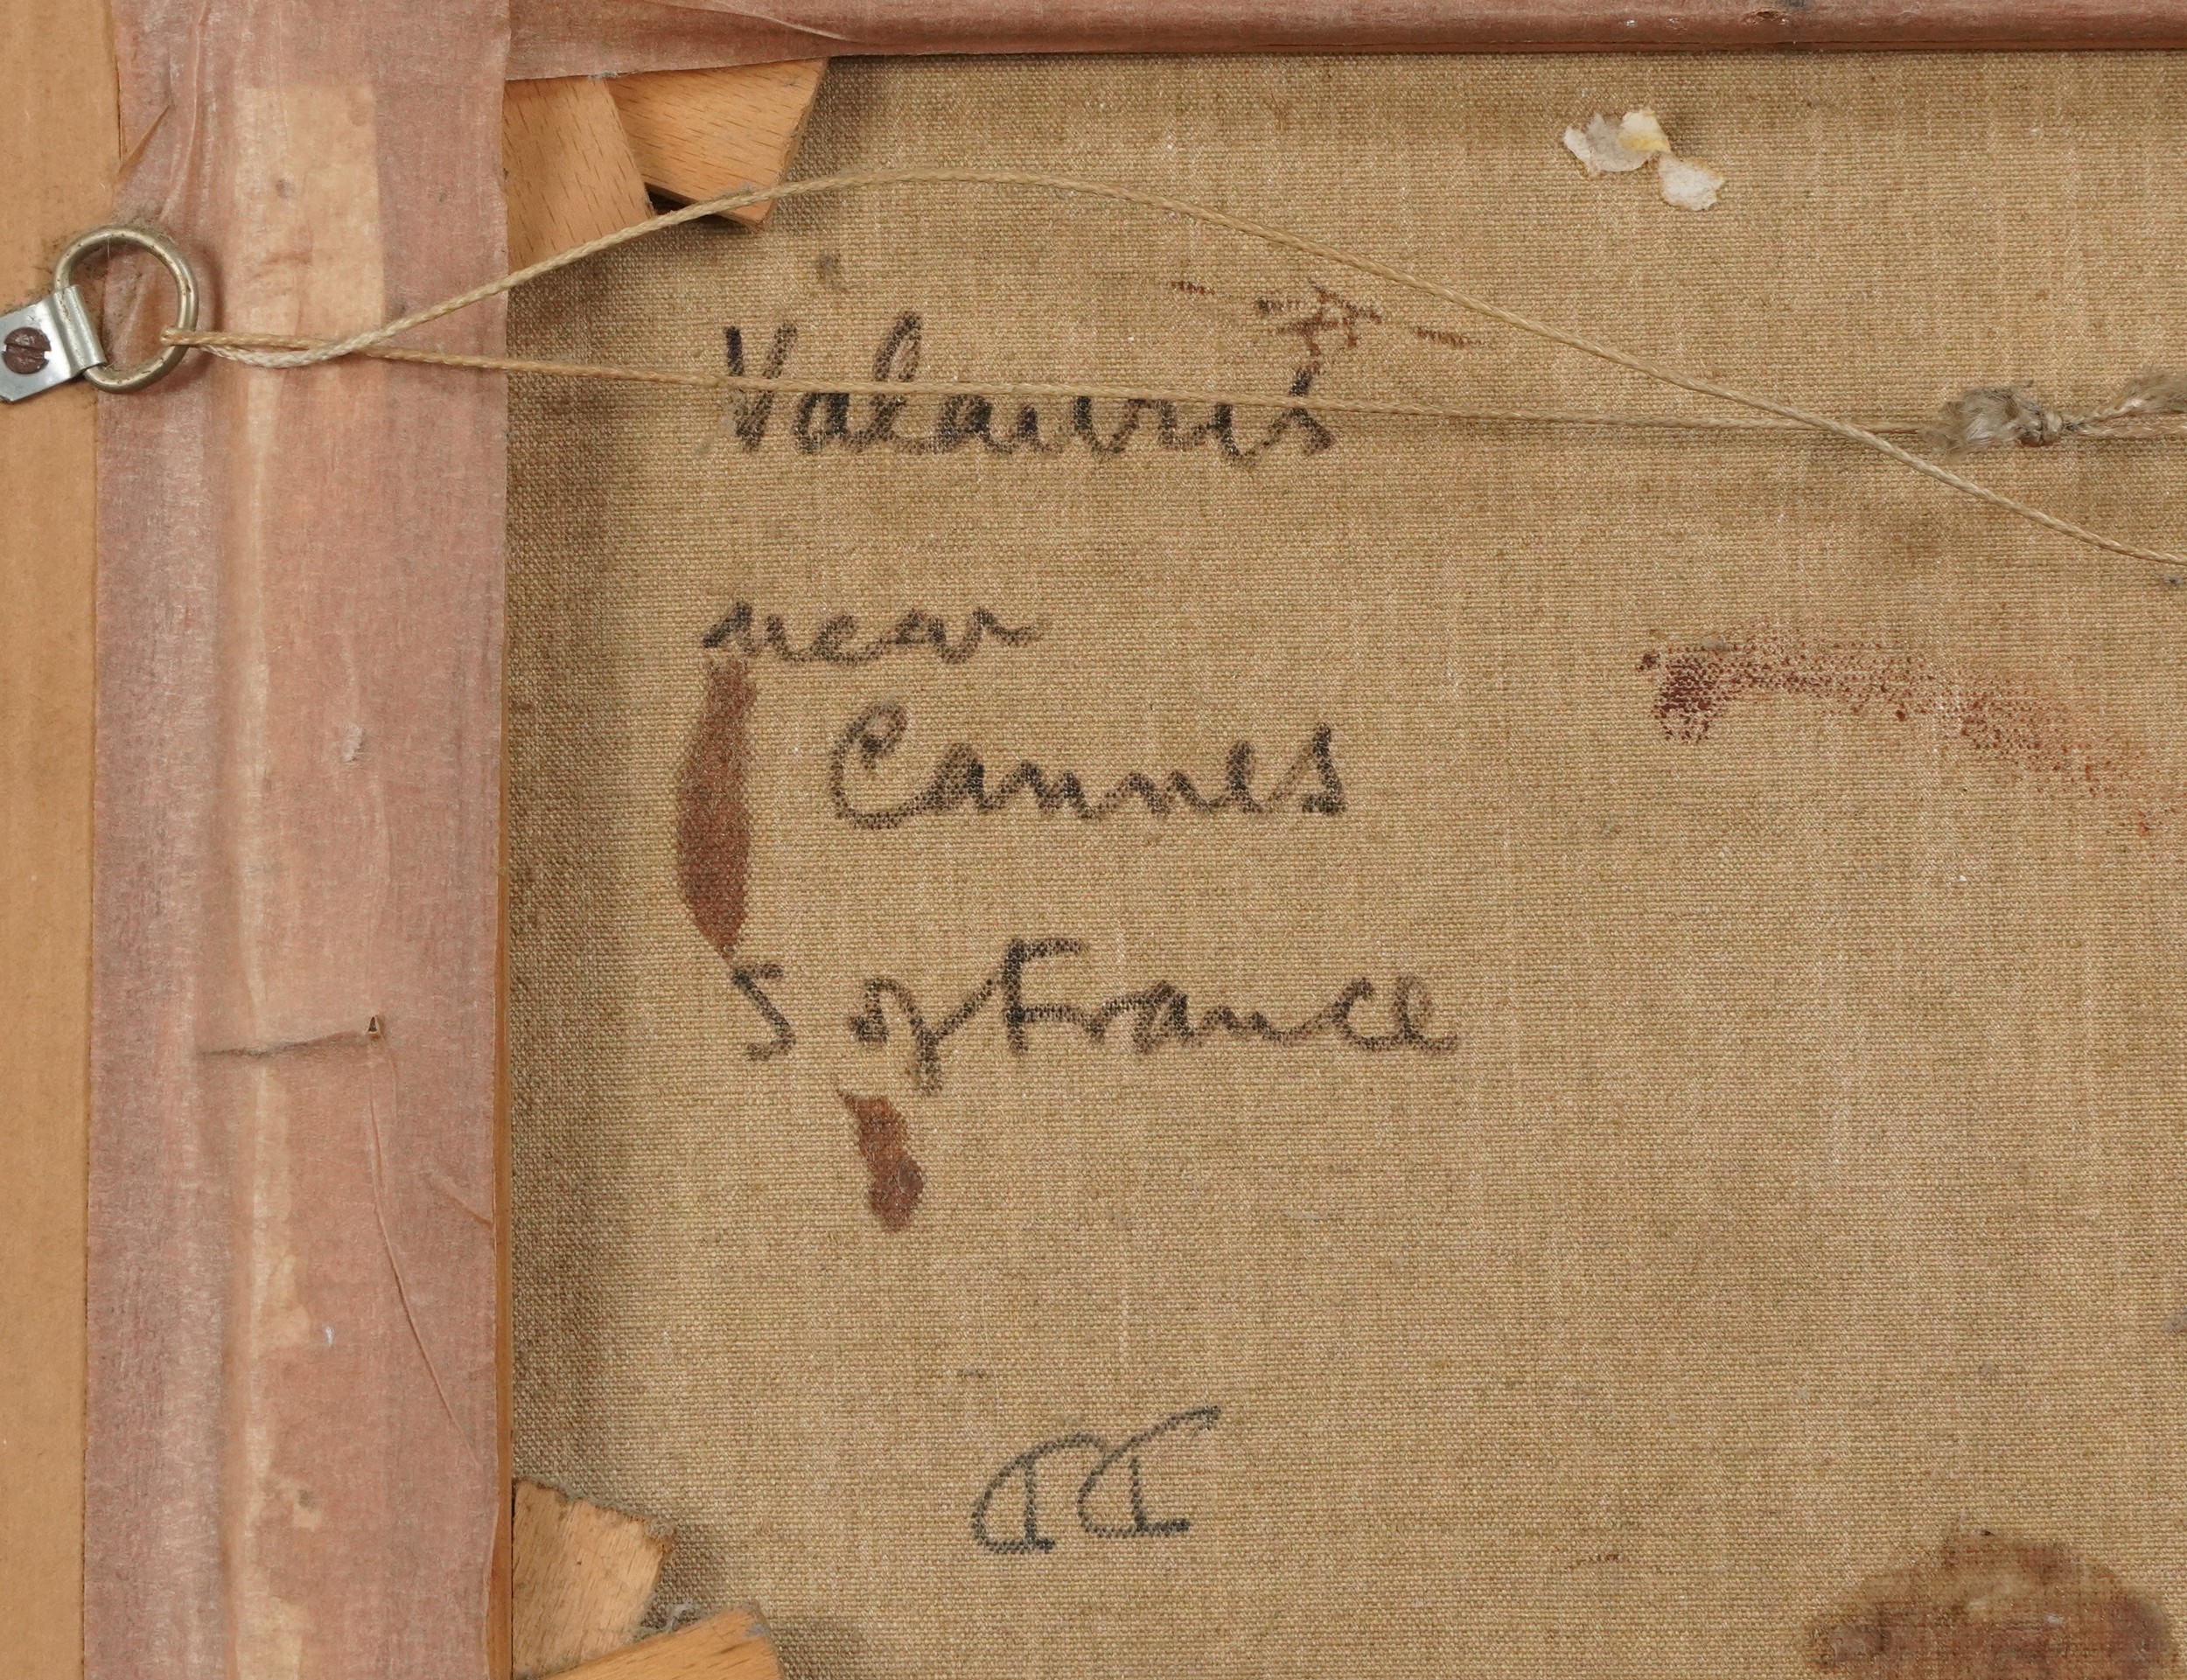 Valauris
near
Cannes
S of France